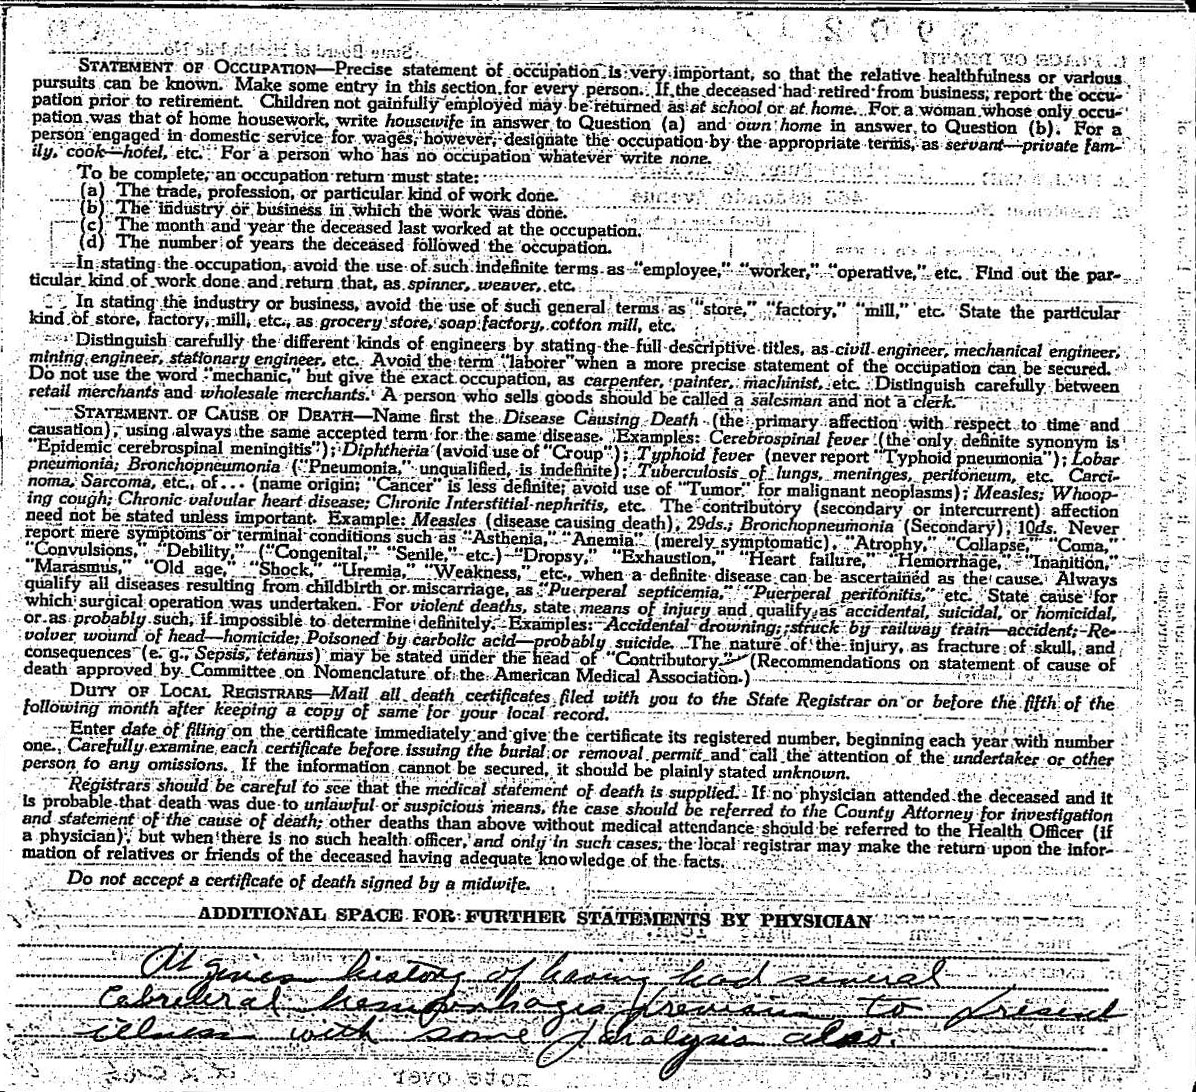 STATEMENT OF OCCUPATION—Precise statement of occupation is very important, so that the relative healthfulness or various
pursuits can be known. Make some entry in this section for every person. If the deceased had retired from business, report the occu-
pation prior to retirement. Children not gainfully employed may be returned as at school or at home. For a woman whose only occu-
pation was that of home housework, write housewife in answer to Question (a) and own home in answer to Question (b). For a
person engaged in domestic service for wages, however, designate the occupation by the appropriate terms, as servant—private fam-
ily, cook—hotel, etc. For a person who has no occupation whatever write none.
To be complete, an occupation return must state:
(a) The trade, profession, or particular kind of work done.
(b) The industry or business in which the work was done.
(c) The month and year the deceased last worked at the occupation.
(d) The number of years the deceased followed the occupation.
In stating the occupation, avoid the use of such indefinite terms as "employee," "worker," "operative," etc. Find out the par-
ticular kind of work done and return that, as spinner, weaver, etc.
In stating the industry or business, avoid the use of such general terms as "store," "factory," "mill," etc. State the particular
kind of store, factory, mill, etc., as grocery store, soap factory, cotton mill, etc.
Distinguish carefully the different kinds of engineers by stating the full descriptive titles, as civil engineer, mechanical engineer,
mining engineer, stationary engineer, etc. Avoid the term "laborer" when a more precise statement of the occupation can be secured.
Do not use the word "mechanic," but give the exact occupation, as carpenter, painter, machinist, etc. Distinguish carefully between
retail merchants and wholesale merchants. A person who sells goods should be called a salesman and not a clerk.
STATEMENT OF CAUSE OF DEATH—Name first the Disease Causing Death (the primary affection with respect to time and
causation), using always the same accepted term for the same disease. Examples: Cerebrospinal fever (the only definite synonym is
"Epidemic cerebrospinal meningitis"); Diphtheria (avoid use of "Croup"); Typhoid fever (never report "Typhoid pneumonia"); Lobar
pneumonia; Bronchopneumonia ("Pneumonia," unqualified, is indefinite); Tuberculosis of lungs, meninges, peritoneum, etc. Carci-
noma, Sarcoma, etc., of... (name origin; "Cancer" is less definite; avoid use of "Tumor" for malignant neoplasms); Measles; Whoop-
ing cough; Chronic valvular heart disease; Chronic Interstitial nephritis, etc. The contributory (secondary or intercurrent) affection
need not be stated unless important. Example: Measles (disease causing death), 29ds.; Bronchopneumonia (Secondary), 10ds. Never
report mere symptoms or terminal conditions such as "Asthenia," "Anemia" (merely symptomatic), "Atrophy," "Collapse," "Coma,"
"Convulsions," "Debility," ("Congenital," "Senile," etc.) "Dropsy," "Exhaustion," "Heart failure," "Hemorrhage," "Inanition,"
"Marasmus," "Old age," "Shock," "Uremia," "Weakness," etc., when a definite disease can be ascertained as the cause. Always
qualify all diseases resulting from childbirth or miscarriage, as "Puerperal septicemia," "Puerperal peritonitis," etc. State cause for
which surgical operation was undertaken. For violent deaths, state means of injury and qualify as accidental, suicidal, or homicidal,
or as probably such, if impossible to determine definitely. Examples: Accidental drowning; struck by railway train—accident; Re-
volver wound of head—homicide; Poisoned by carbolic acid—probably suicide. The nature of the injury, as fracture of skull, and
consequences (e. g., Sepsis, tetanus) may be stated under the head of "Contributory." (Recommendations on statement of cause of
death approved by Committee on Nomenclature of the American Medical Association.)
DUTY OF LOCAL REGISTRARS—Mail all death certificates filed with you to the State Registrar on or before the fifth of the
following month after keeping a copy of same for your local record.
Enter date of filing on the certificate immediately and give the certificate its registered number, beginning each year with number
one. Carefully examine each certificate before issuing the burial or removal permit and call the attention of the undertaker or other
person to any omissions. If the information cannot be secured, it should be plainly stated unknown.
Registrars should be careful to see that the medical statement of death is supplied. If no physician attended the deceased and it
is probable that death was due to unlawful or suspicious means, the case should be referred to the County Attorney for investigation
and statement of the cause of death; other deaths than above without medical attendance should be referred to the Health Officer (if
a physician), but when there is no such health officer, and only in such cases, the local registrar may make the return upon the infor-
mation of relatives or friends of the deceased having adequate knowledge of the facts.
Do not accept a certificate of death signed by a midwife.
ADDITIONAL SPACE FOR FURTHER STATEMENTS BY PHYSICIAN
gives history of having had several
Cabreueral hemporhages previous to present
illness with some paralysis also.
note over